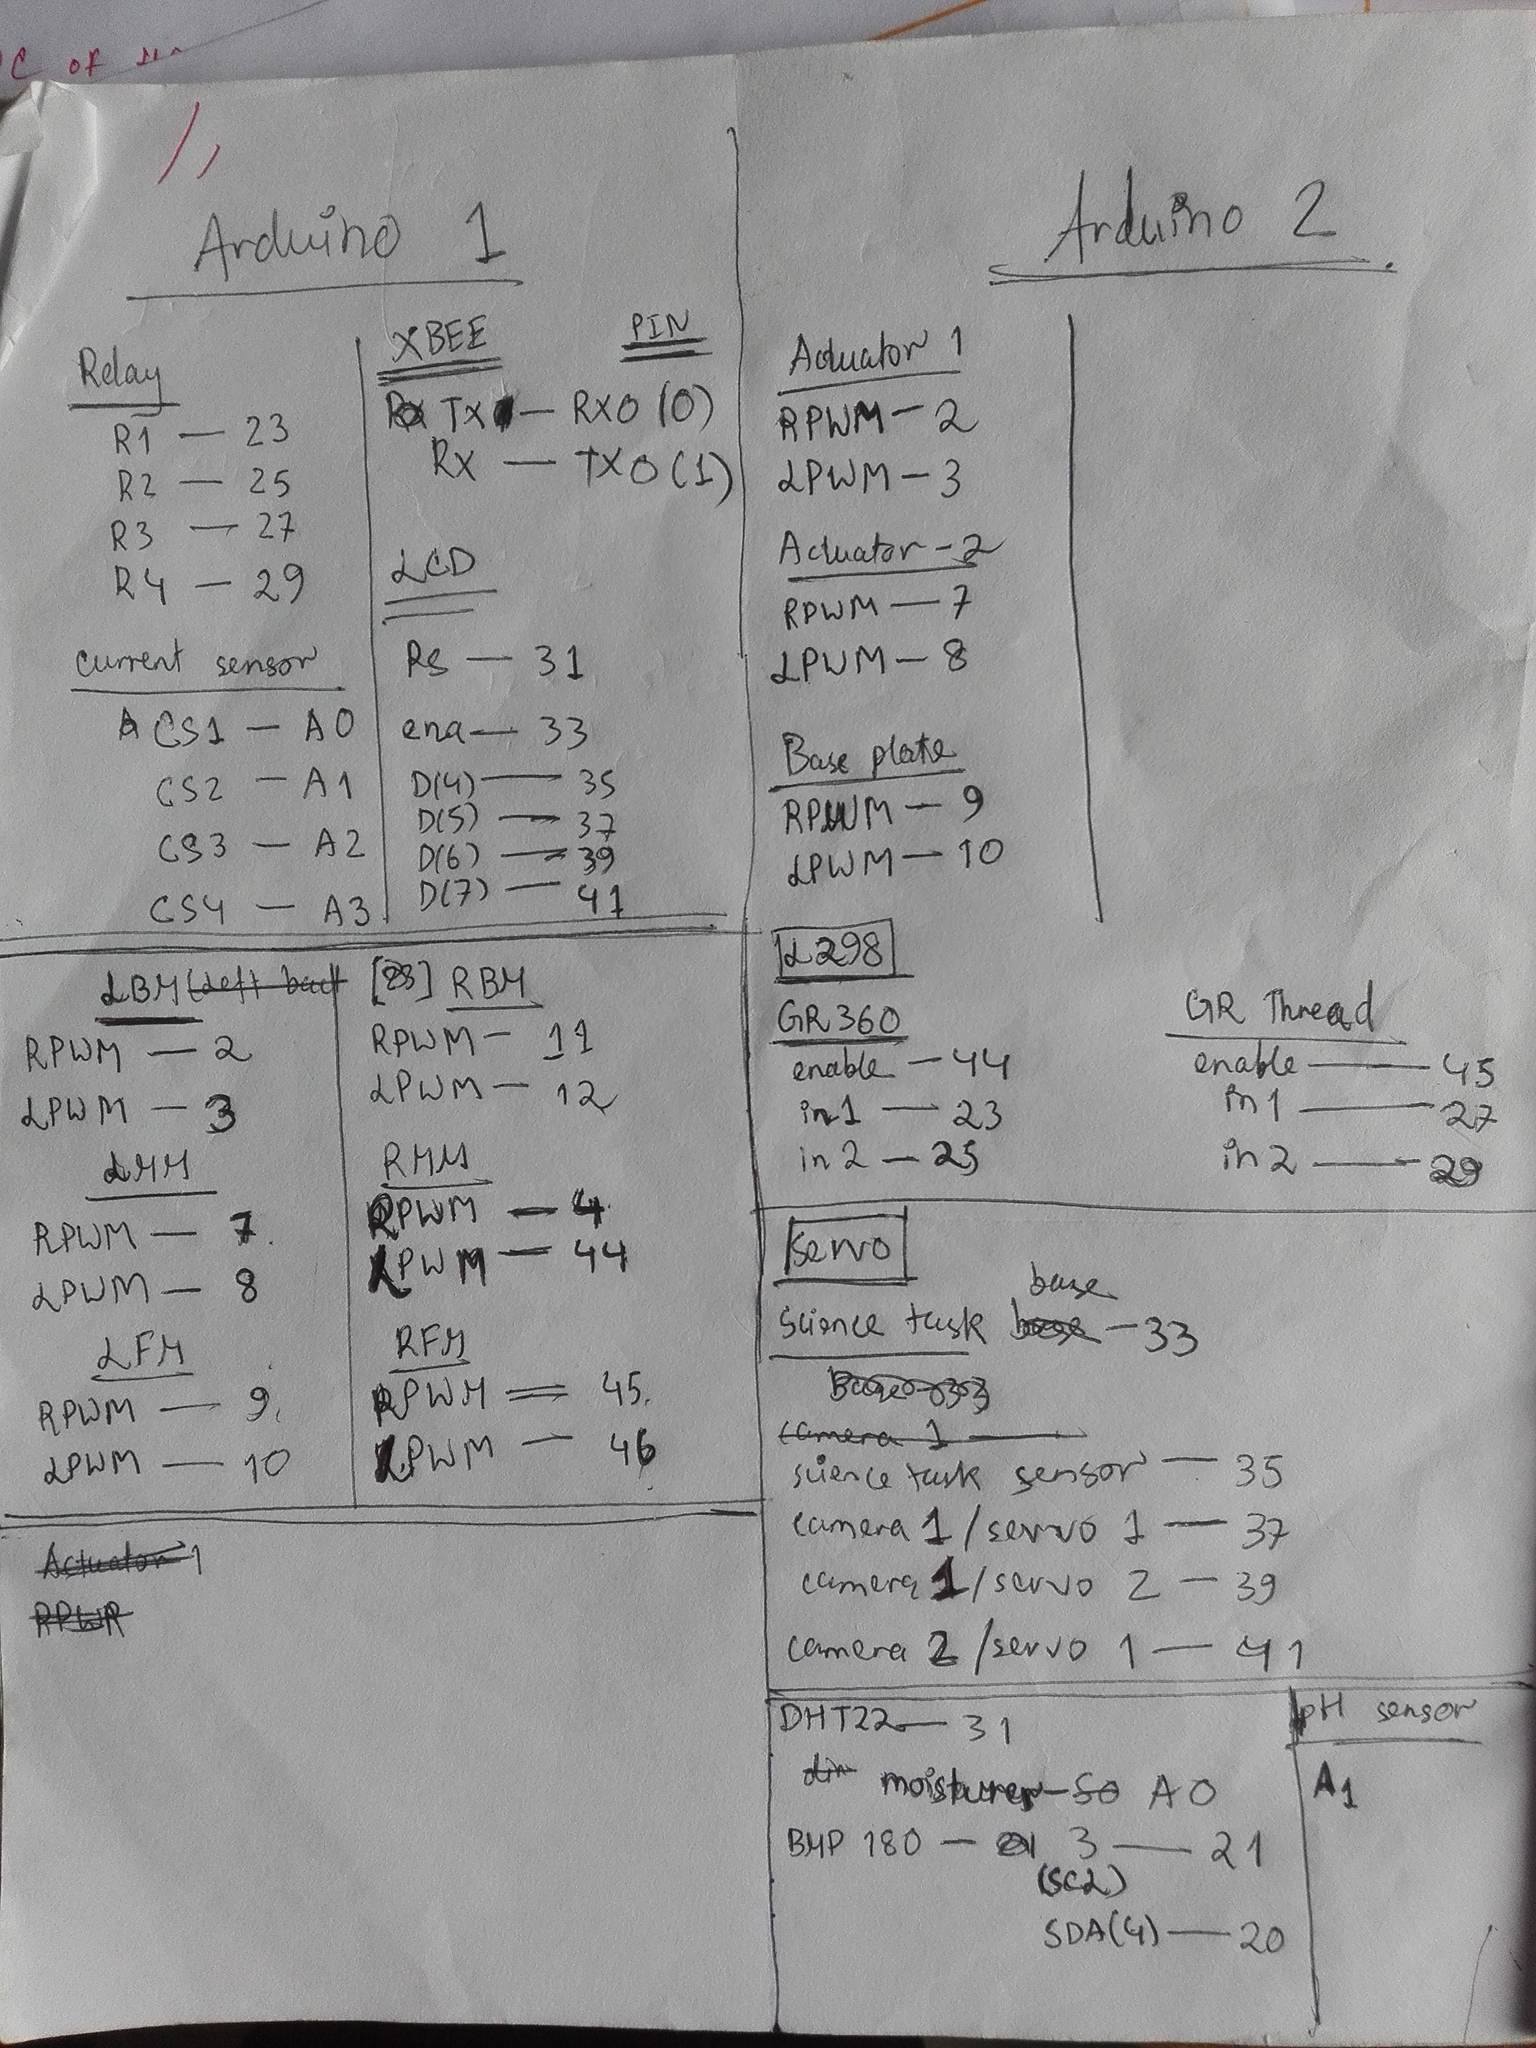 C OF
Arduino 1
Relay
R1 — 23
R2 — 25
R3 — 27
R4 — 29
current sensor
CS1 — A0
CS2 — A1
CS3 — A2
CS4 — A3
XBEE PIN
TX — RX0 (0)
RX — TX0 (1)
LCD
RS — 31
ena — 33
D(4) — 35
D(5) — 37
D(6) — 39
D(7) — 41
LBM (Left back
RPWM — 2
LPWM — 3
LMM
RPWM — 7
LPWM — 8
LFM
RPWM — 9
LPWM — 10
RBM
RPWM — 11
LPWM — 12
RMM
RPWM — 4
LPWM — 44
RFM
RPWM = 45
LPWM — 46
Actuator 1
RPWR
Arduino 2
Actuator 1
RPWM — 2
LPWM — 3
Actuator - 2
RPWM — 7
LPWM — 8
Base plate
RPWM — 9
LPWM — 10
L298
GR360
enable — 44
in1 — 23
in2 — 25
GR Thread
enable — 45
in1 — 27
in2 — 29
Servo
Science task base — 33
Base - 33
camera 1 —
science task sensor — 35
camera 1 / servo 1 — 37
camera 1 / servo 2 — 39
camera 2 / servo 1 — 41
DHT22 — 31
moisturer — A0
BMP 180 — 3 — 21
(SCL)
SDA(4) — 20
pH sensor
A1